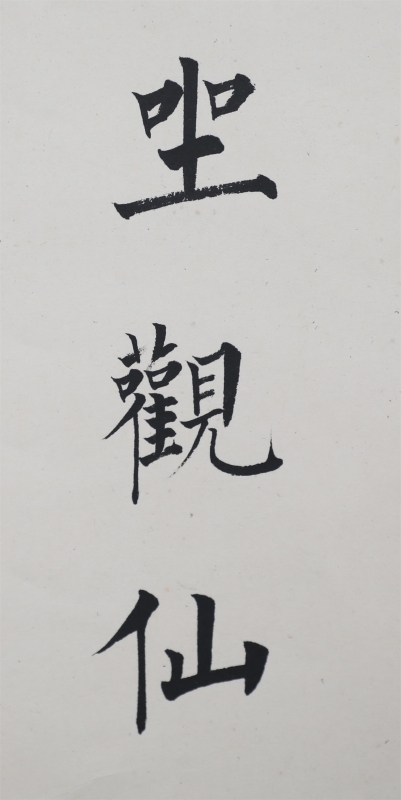 坐觀仙